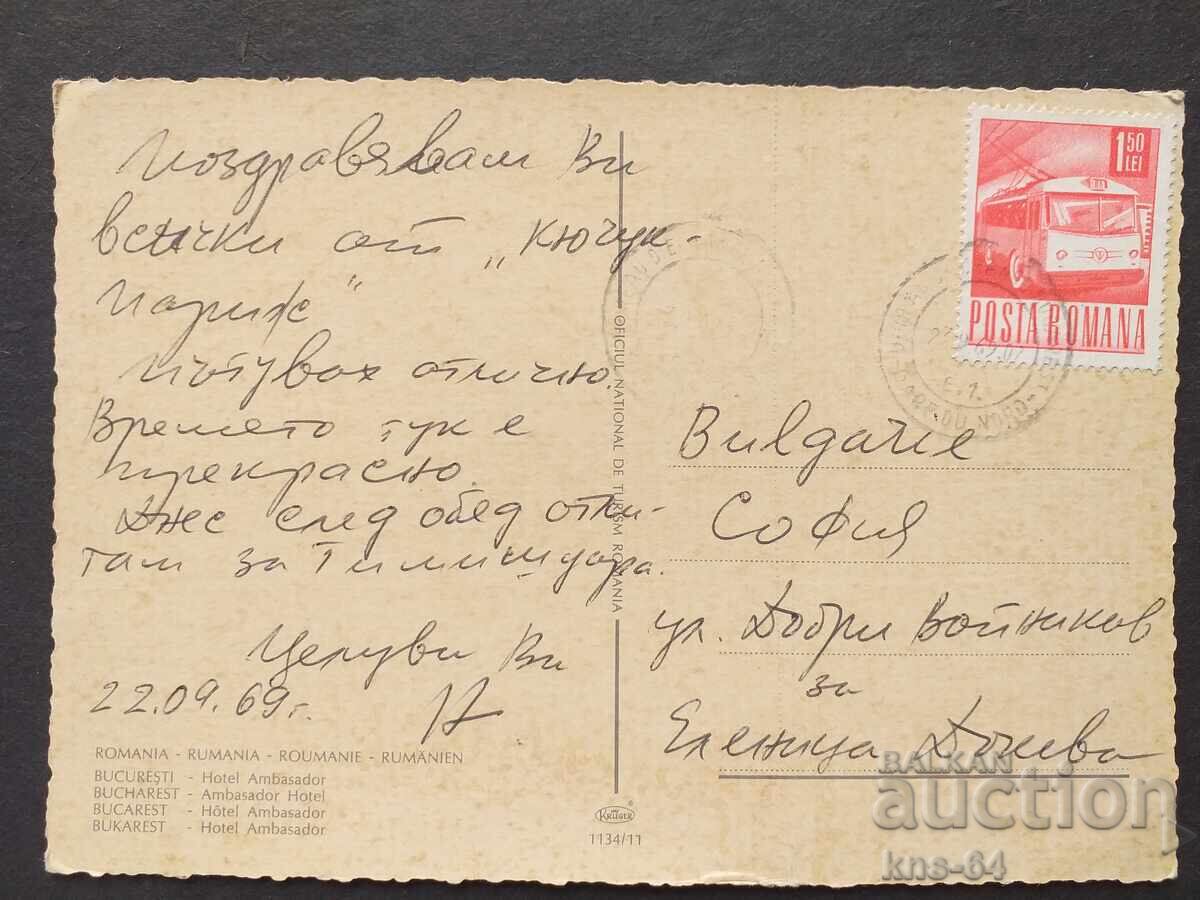 Поздравявам Ви
всички от „Кючук-
Париж“
Пътувах отлично.
Времето тук е
прекрасно.
Днес след обед отли-
там за Тимишуара.
Целуви Ви
22.09.69г.
ROMANIA - RUMANIA - ROUMANIE - RUMÄNIEN
BUCUREŞTI - Hotel Ambasador
BUCHAREST - Ambasador Hotel
BUCAREST - Hôtel Ambasador
BUKAREST - Hotel Ambasador
OFICIUL NATIONAL DE TURISM ROMANIA
KRÜGER
1134/11
1 50
LEI
POSTA ROMANA
GARE DU NORD
Bulgarie
София
ул. Добри Войников
за
Еленица Дочева
BALKAN
auction
kns-64